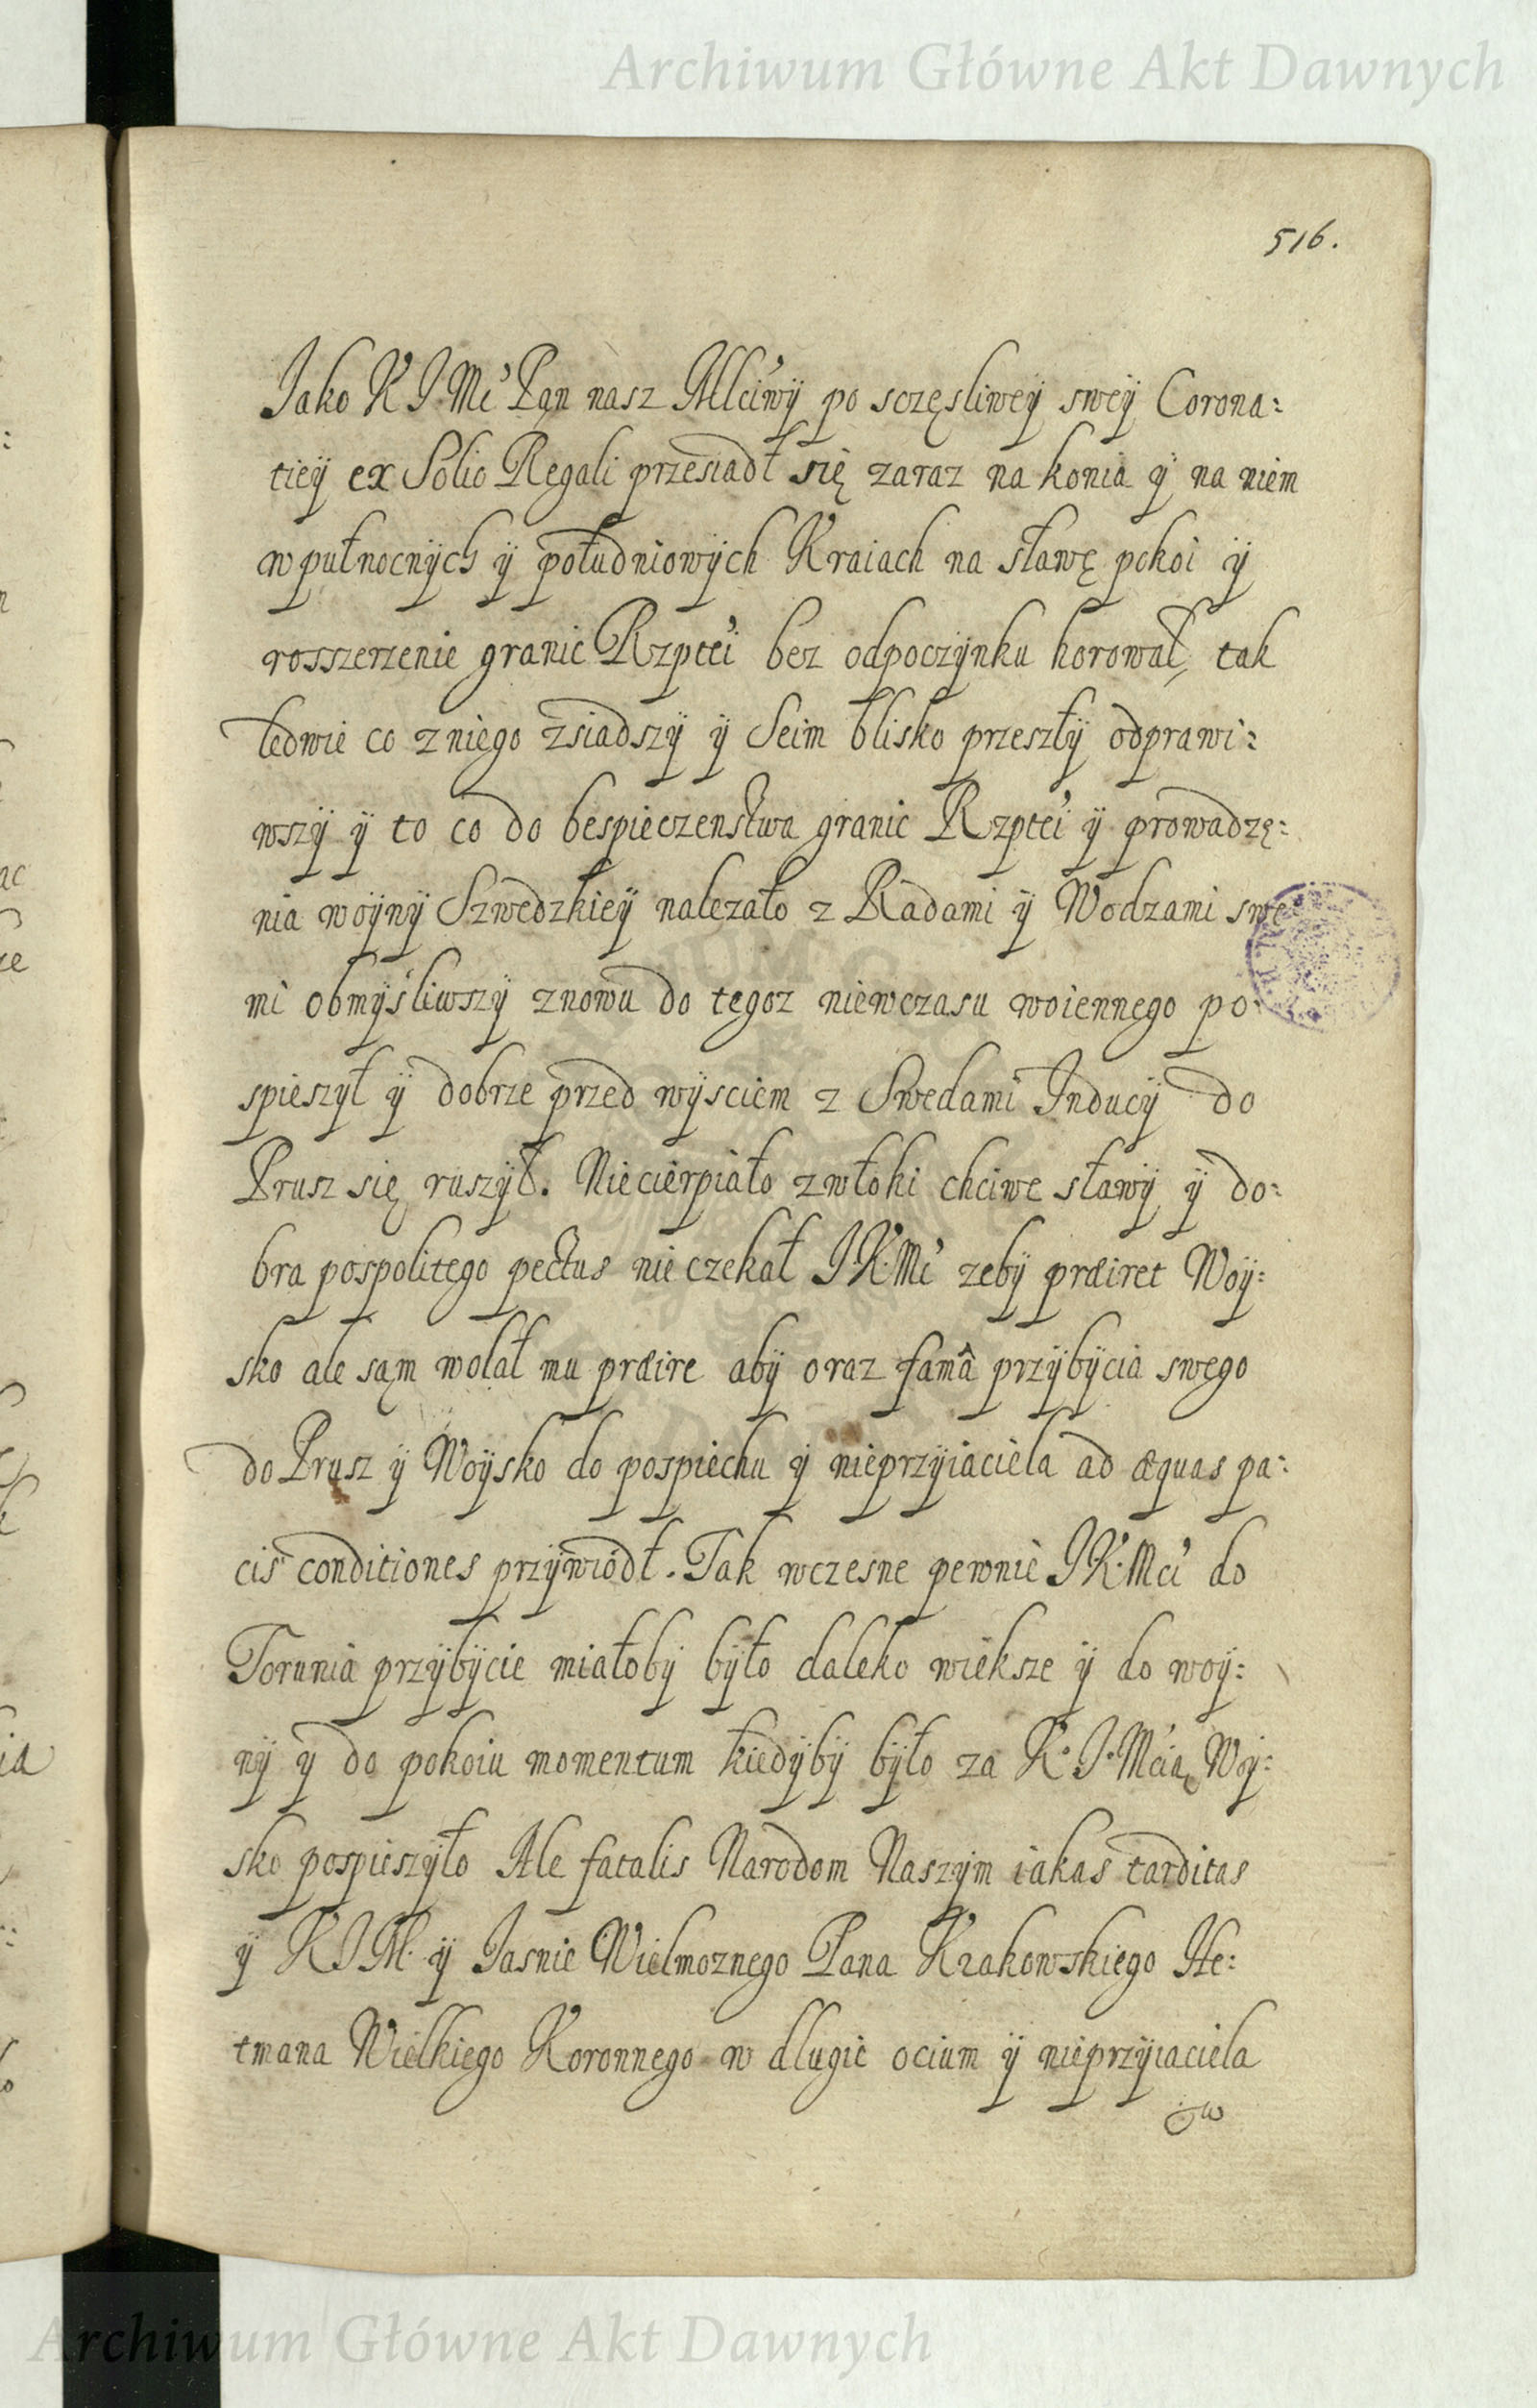 Archiwum Główne Akt Dawnych
516.
Jako K J Mć Pąn nasz Mlciwÿ po sczęsliweÿ sweÿ Corona:
tieÿ ex Solio Regali przesiadł się zaraz na konia ÿ na niem
w pułnocnÿch ÿ południowÿch Kraiach na sławę pokoi ÿ
rosszerzenie granic Rzptei bez odpoczÿnku horował, tak
ledwie co z niego zsiadszÿ ÿ Seim blisko przeszłÿ odprawi:
wszÿ ÿ to co do bespieczenstwa granic Rzptei ÿ prowadzę:
nia woÿnÿ Szwedzkieÿ nalezało z Radami ÿ Wodzami swe
mi obmÿśliwszÿ znowu do tegoz niewczasu woiennego po:
spieszÿł ÿ dobrze przed wÿsciem z Swedami Inducÿ do
Prusz się ruszÿł. Niecierpiało zwłoki chciwe sławÿ ÿ do:
bra pospolitego pectus nie czekał J K. Mć zebÿ præiret Woÿ:
sko ale sąm wolał mu præire abÿ oraz famâ przÿbÿcia swego
do Prusz ÿ Woÿsko do pospiechu ÿ nieprzÿiaciela ad æquas pa:
cis conditiones przÿwiódł. Tak wczesne pewnie J K. Mci do
Torunia przÿbÿcie miałobÿ bÿło daleko wieksze ÿ do woÿ:
nÿ ÿ do pokoiu momentum kiedÿbÿ bÿło za K. J. Mcią Woÿ:
sko pospieszÿło Ale fatalis Narodom Naszÿm iakas tarditas
ÿ K J M. ÿ Jasnie Wielmoznego Pana Krakowskiego He:
tmana Wielkiego Koronnego w dlugie ocium ÿ nieprzÿiaciela
w
Archiwum Główne Akt Dawnych